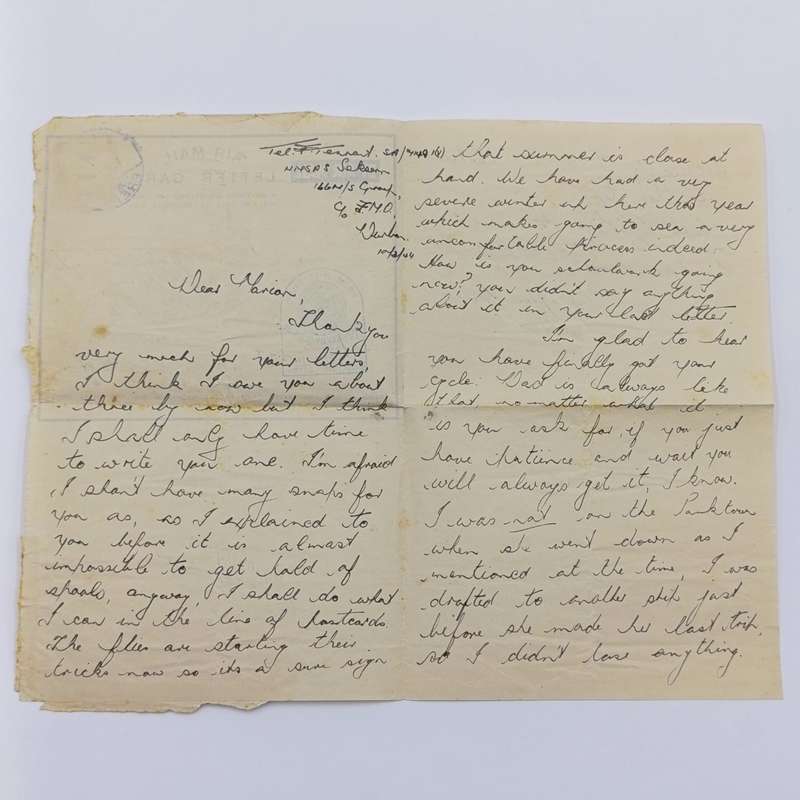 Tel. F. Tennant. SA/
HMSAS Seksern
166 M/S Group,
c/o F.M.O.
Durban.
10/3/44
Dear Marion,
Thank you
very much for your letters,
I think I owe you about
three by now but I think
I shall only have time
to write you one. I'm afraid
I shan't have many snaps for
you as, as I explained to
you before it is almost
impossible to get hold of
spools, anyway, I shall do what
I can in the line of postcards.
The flies are starting their
tricks now so its a sure sign
that summer is close at
hand. We have had a very
severe winter up here this year
which makes going to sea a very
uncomfortable process indeed.
How is you schoolwork going
now? you didn't say anything
about it in your last letter.
I'm glad to hear
you have finally got your
cycle. Dad is always like
that, no matter what it
is you ask for, if you just
have patience and wait you
will always get it, I know.
I was not on the Parktown
when she went down as I
mentioned at the time, I was
drafted to another ship just
before she made her last trip,
so I didn't lose anything.
AIR MAIL
LETTER CARD